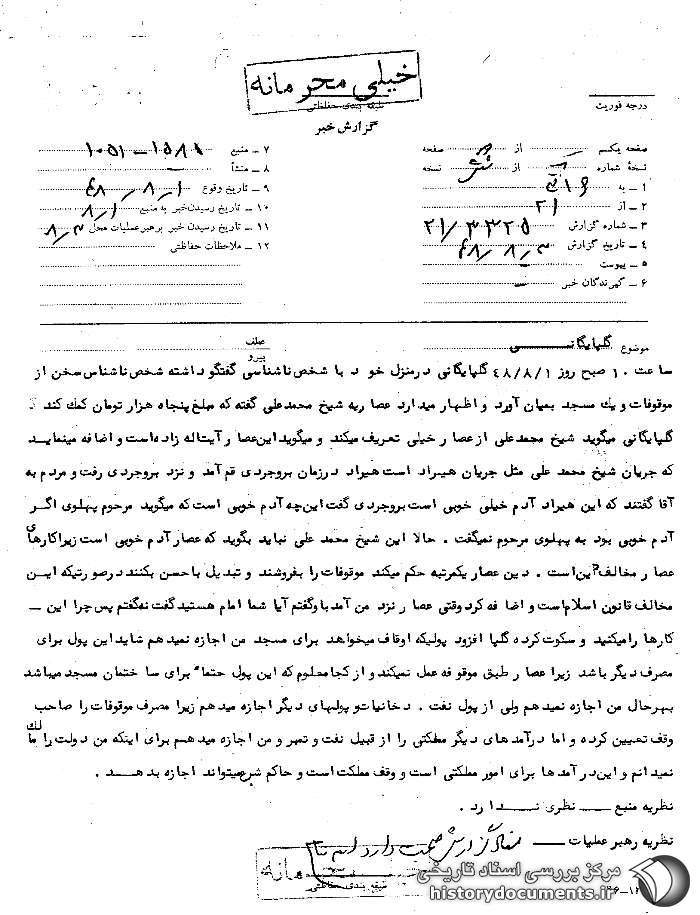 خیلی محرمانه
طبقه بندی حفاظتی
درجه فوریت
گزارش خبر
صفحه یکم از صفحه
نسخهٔ شماره از شش نسخه
۱ ـ به
۲ ـ از ۲۱
۳ ـ شماره گزارش ۲۱/۳۳۲۵
۴ ـ تاریخ گزارش ۴۸/۸/۳
۵ ـ پیوست ـ
۶ ـ گیرندگان خبر ـ
۷ ـ منبع ۱۵۸۱ ـ ۱۰۵۱
۸ ـ منشأ ـ
۹ ـ تاریخ وقوع ۴۸/۸/۱
۱۰ ـ تاریخ رسیدن خبر به منبع ۸/۱
۱۱ ـ تاریخ رسیدن خبر برهبر عملیات محل ۸/۳
۱۲ ـ ملاحظات حفاظتی
موضوع گلپایگانـــی
عطف
پیرو
ساعت ۱۰ صبح روز ۴۸/۸/۱ گلپایگانی درمنزل خود با شخص ناشناسی گفتگو داشته شخص ناشناس سخن از
موقوفات و یک مسجد بمیان آورد و اظهار میدارد عصار به شیخ محمدعلی گفته که مبلغ پنجاه هزار تومان کمک کند
گلپایگانی میگوید شیخ محمدعلی از عصار خیلی تعریف میکند و میگوید این عصار آیت‌اله زاده است و اضافه مینماید
که جریان شیخ محمد علی مثل جریان هیراد است هیراد درزمان بروجردی قم آمد و نزد بروجردی رفت و مردم به
آقا گفتند که این هیراد آدم خیلی خوبی است بروجردی گفت این چه آدم خوبی است که میگوید مرحوم پهلوی اگر
آدم خوبی بود به پهلوی مرحوم نمیگفت . حالا این شیخ محمد علی نباید بگوید که عصار آدم خوبی است زیرا کارهای
عصار مخالف دین است . این عصار یکمرتبه حکم میکند موقوفات را بفروشند و تبدیل باحسن بکنند درصورتیکه ایــن
مخالف قانون اسلام است و اضافه کرد وقتی عصار نزد من آمد باو گفتم آیا شما امام هستید گفت نه گفتم پس چرا این ــ
کارها را میکنید و سکوت کرده گلپا افزود پولیکه اوقاف میخواهد برای مسجد من اجازه نمیدهم شاید این پول برای
مصرف دیگر باشد زیرا عصار طبق موقوفه عمل نمیکند و از کجا معلوم که این پول حتماً برای ساختمان مسجد میباشد
بهرحال من اجازه نمیدهم ولی از پول نفت . دخانیات و پولهای دیگر اجازه میدهم زیرا مصرف موقوفات را صاحب
وقف تعیین کرده و اما درآمدهای دیگر مملکتی را از قبیل نفت و تمبر و من اجازه میدهم برای اینکه من دولت را مالک
نمیدانم و این درآمدها برای امور مملکتی است و وقف مملکت است و حاکم شرع میتواند اجازه بدهــد .
نظریه منبع ــــ نظری نــــدارد .
نظریه رهبر عملیات ــــ مفاد گزارش صحت دارد
طبقه بندی حفاظتی
مرکز بررسی اسناد تاریخی
historydocuments.ir